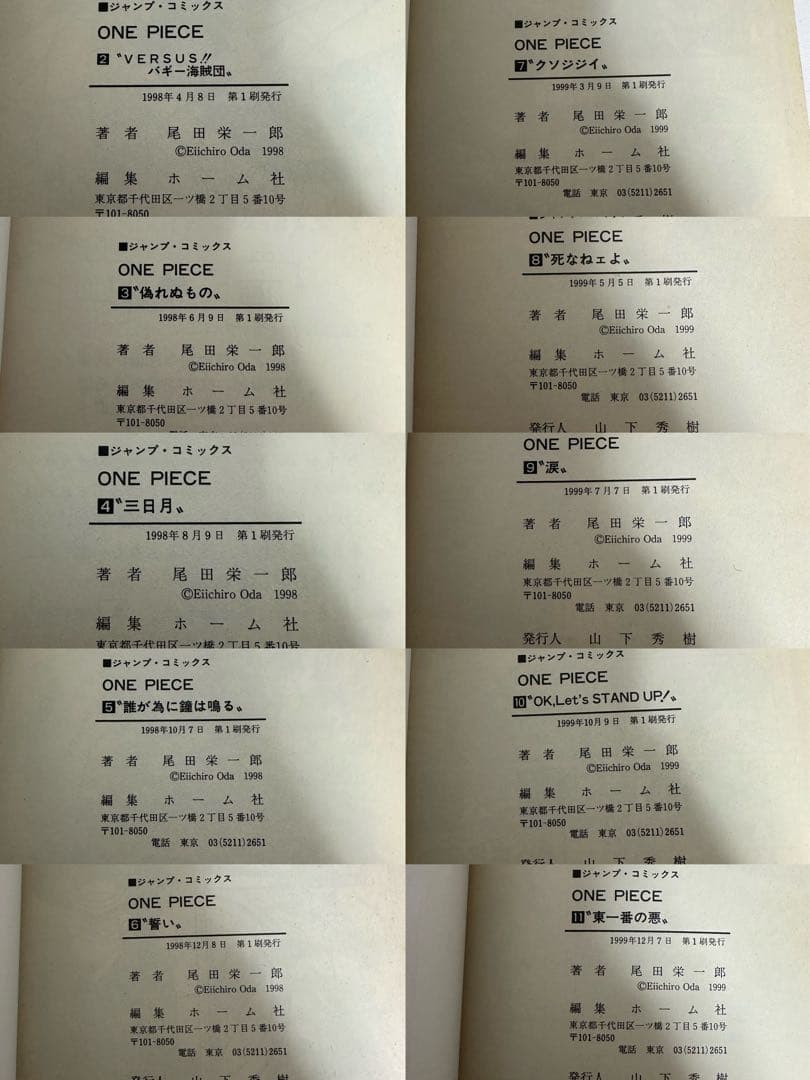 ■ジャンプ・コミックス
ONE PIECE
2 〝VERSUS!!
バギー海賊団〟
1998年4月8日 第1刷発行
著者 尾田栄一郎
©Eiichiro Oda 1998
編集 ホーム社
東京都千代田区一ツ橋2丁目5番10号
〒101-8050
■ジャンプ・コミックス
ONE PIECE
3 〝偽れぬもの〟
1998年6月9日 第1刷発行
著者 尾田栄一郎
©Eiichiro Oda 1998
編集 ホーム社
東京都千代田区一ツ橋2丁目5番10号
〒101-8050
■ジャンプ・コミックス
ONE PIECE
4 〝三日月〟
1998年8月9日 第1刷発行
著者 尾田栄一郎
©Eiichiro Oda 1998
編集 ホーム社
東京都千代田区一ツ橋2丁目5番10号
■ジャンプ・コミックス
ONE PIECE
5 〝誰が為に鐘は鳴る〟
1998年10月7日 第1刷発行
著者 尾田栄一郎
©Eiichiro Oda 1998
編集 ホーム社
東京都千代田区一ツ橋2丁目5番10号
〒101-8050
電話 東京 03(5211)2651
■ジャンプ・コミックス
ONE PIECE
6 〝誓い〟
1998年12月8日 第1刷発行
著者 尾田栄一郎
©Eiichiro Oda 1998
編集 ホーム社
東京都千代田区一ツ橋2丁目5番10号
〒101-8050
電話 東京 03(5211)2651
■ジャンプ・コミックス
ONE PIECE
7 〝クソジジイ〟
1999年3月9日 第1刷発行
著者 尾田栄一郎
©Eiichiro Oda 1999
編集 ホーム社
東京都千代田区一ツ橋2丁目5番10号
〒101-8050
電話 東京 03(5211)2651
ONE PIECE
8 〝死なねェよ〟
1999年5月5日 第1刷発行
著者 尾田栄一郎
©Eiichiro Oda 1999
編集 ホーム社
東京都千代田区一ツ橋2丁目5番10号
〒101-8050
電話 東京 03(5211)2651
発行人 山下秀樹
ONE PIECE
9 〝涙〟
1999年7月7日 第1刷発行
著者 尾田栄一郎
©Eiichiro Oda 1999
編集 ホーム社
東京都千代田区一ツ橋2丁目5番10号
〒101-8050
電話 東京 03(5211)2651
発行人 山下秀樹
■ジャンプ・コミックス
ONE PIECE
10 〝OK,Let's STAND UP!〟
1999年10月9日 第1刷発行
著者 尾田栄一郎
©Eiichiro Oda 1999
編集 ホーム社
東京都千代田区一ツ橋2丁目5番10号
〒101-8050
電話 東京 03(5211)2651
■ジャンプ・コミックス
ONE PIECE
11 〝東一番の悪〟
1999年12月7日 第1刷発行
著者 尾田栄一郎
©Eiichiro Oda 1999
編集 ホーム社
東京都千代田区一ツ橋2丁目5番10号
〒101-8050
電話 東京 03(5211)2651